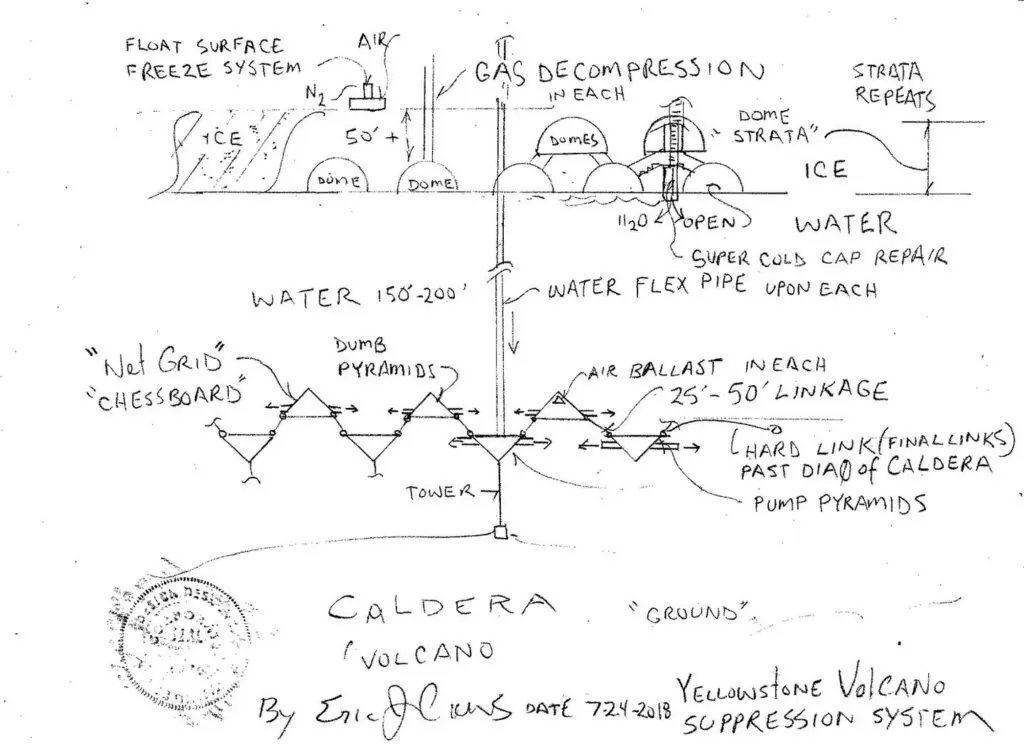 FLOAT SURFACE
FREEZE SYSTEM
AIR
N2
GAS DECOMPRESSION
IN EACH
STRATA
REPEATS
ICE
50'+
DOMES
"DOME
STRATA"
DOME
DOME
ICE
H2O
OPEN
WATER
SUPER COLD CAP REPAIR
UPON EACH
WATER 150'-200'
WATER FLEX PIPE
"Net GRID"
"CHESSBOARD"
DUMB
PYRAMIDS
AIR BALLAST IN EACH
25'-50' LINKAGE
HARD LINK (FINAL LINKS)
PAST DIAØ of CALDERA
PUMP PYRAMIDS
TOWER
CALDERA
VOLCANO
"GROUND"
By Eric J
DATE 7-24-2018
YELLOWSTONE VOLCANO
SUPPRESSION SYSTEM